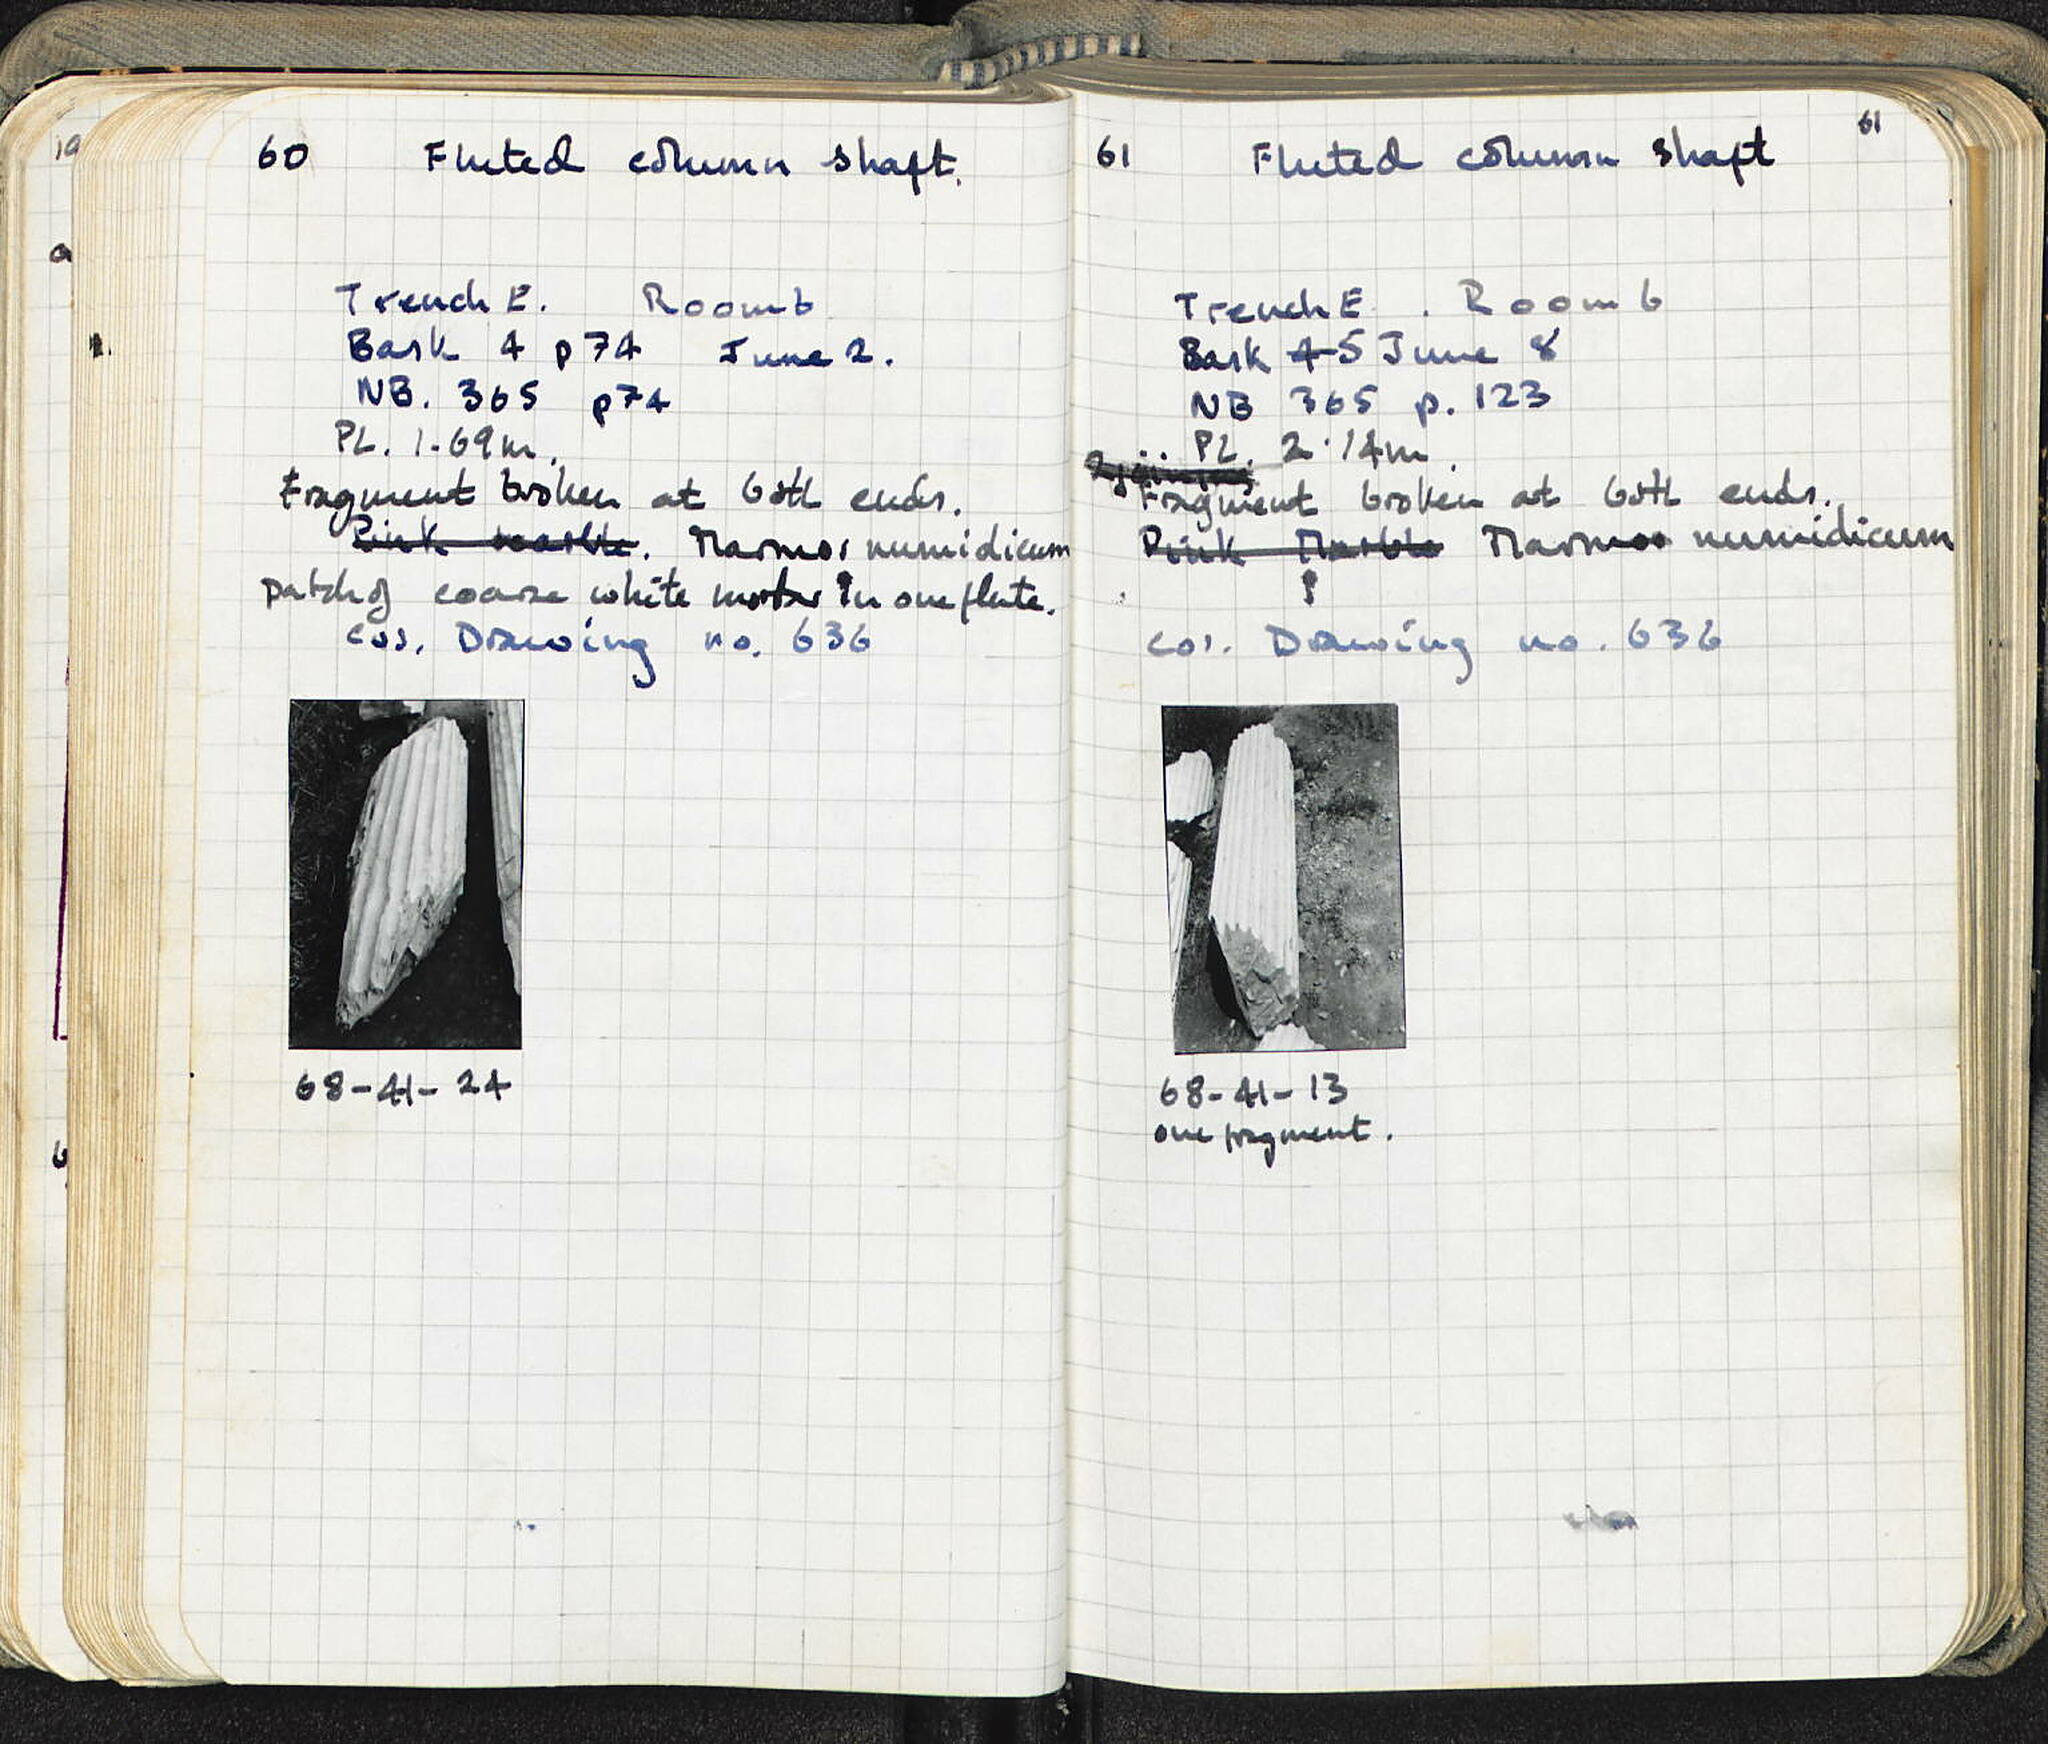 60 Fluted column shaft.
Trench E. Room 6
Bask 4 p74 June 2.
NB. 365 p74
PL. 1.69m.
Fragment broken at both ends.
Pink marble. Marmor numidicum
patch of coarse white mortar in one flute.
Cor. Drawing no. 636
68-41-24
61
61 Fluted column shaft
Trench E. Room 6
Bask 4 5 June 8
NB 365 p. 123
PL. 2.14m.
Fragment broken at both ends.
Pink Marble Marmor numidicum
?
Cor. Drawing no. 636
68-41-13
one fragment.